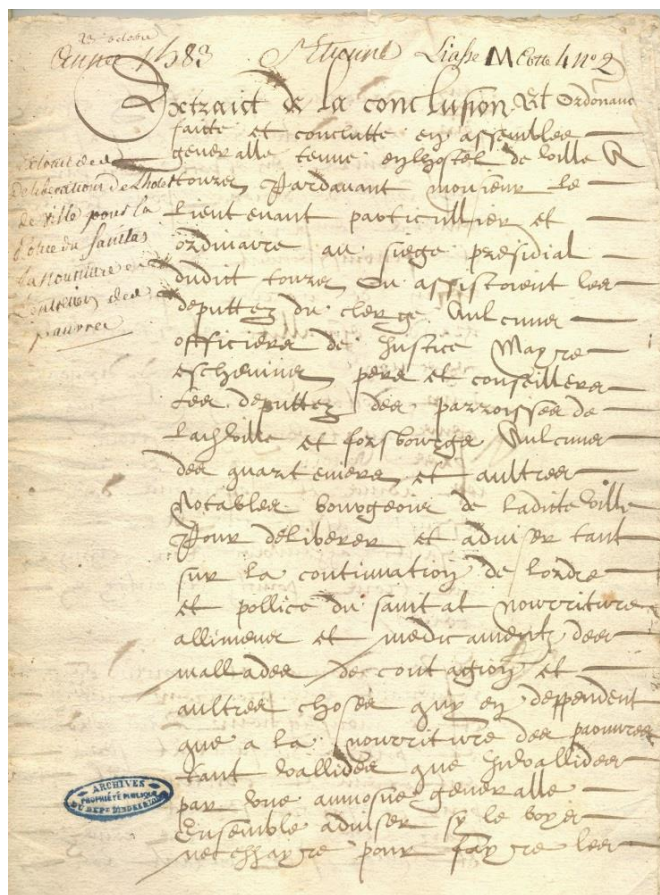 23 octobre
Année 1583 St Etienne Liasse M Cotte 4 n° 2
Extraict de la conclusion Et ordonnance
faicte et conclutte en assemblee
generalle tenue en lhostel de ville
tours Pardavant monsieur le
Lieutenant particullier et
ordinaire au siege presidial
dudit tours Ou assistoient les
deputtez du clerge Aulcuns
officiers de Justice Mayre
eschevins pers et conseillers
Les deputtez des parroisses de
lad ville et forsbourgs Aulcuns
des quarteniers et aultres
Notables bourgeois de ladite ville
Pour deliberer et adviser tant
sur la continuation de lordre
et pollice du sanitat nourriture
allimens et medicaments des
mallades de contagion et
aultres choses quy en deppendent
que a la nourriture des paouvres
tant vallides que Invallides
par une aumosne generalle
Ensemble adviser sy le
necessayre pour fayre les
Extrait de
deliberation de Lhotel
de ville pour la
police du sanitas
la nouriture et
Lentretien des
pauvres
ARCHIVES
PROPRIÉTÉ PUBLIQUE
DU DÉPT D'INDRE ET LOIRE